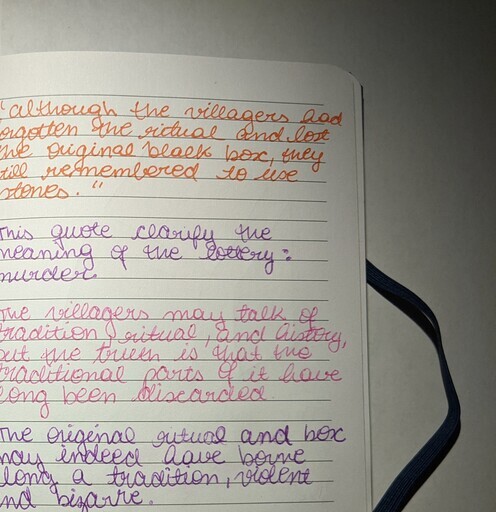 "although the villagers had
forgotten the ritual and lost
the original black box, they
still remembered to use
stones."
This quote clarify the
meaning of the lottery:
murder.
The villagers may talk of
tradition, ritual, and history,
but the truth is that the
traditional parts of it have
long been discarded.
The original ritual and box
may indeed have borne
along a tradition, violent
and bizarre.